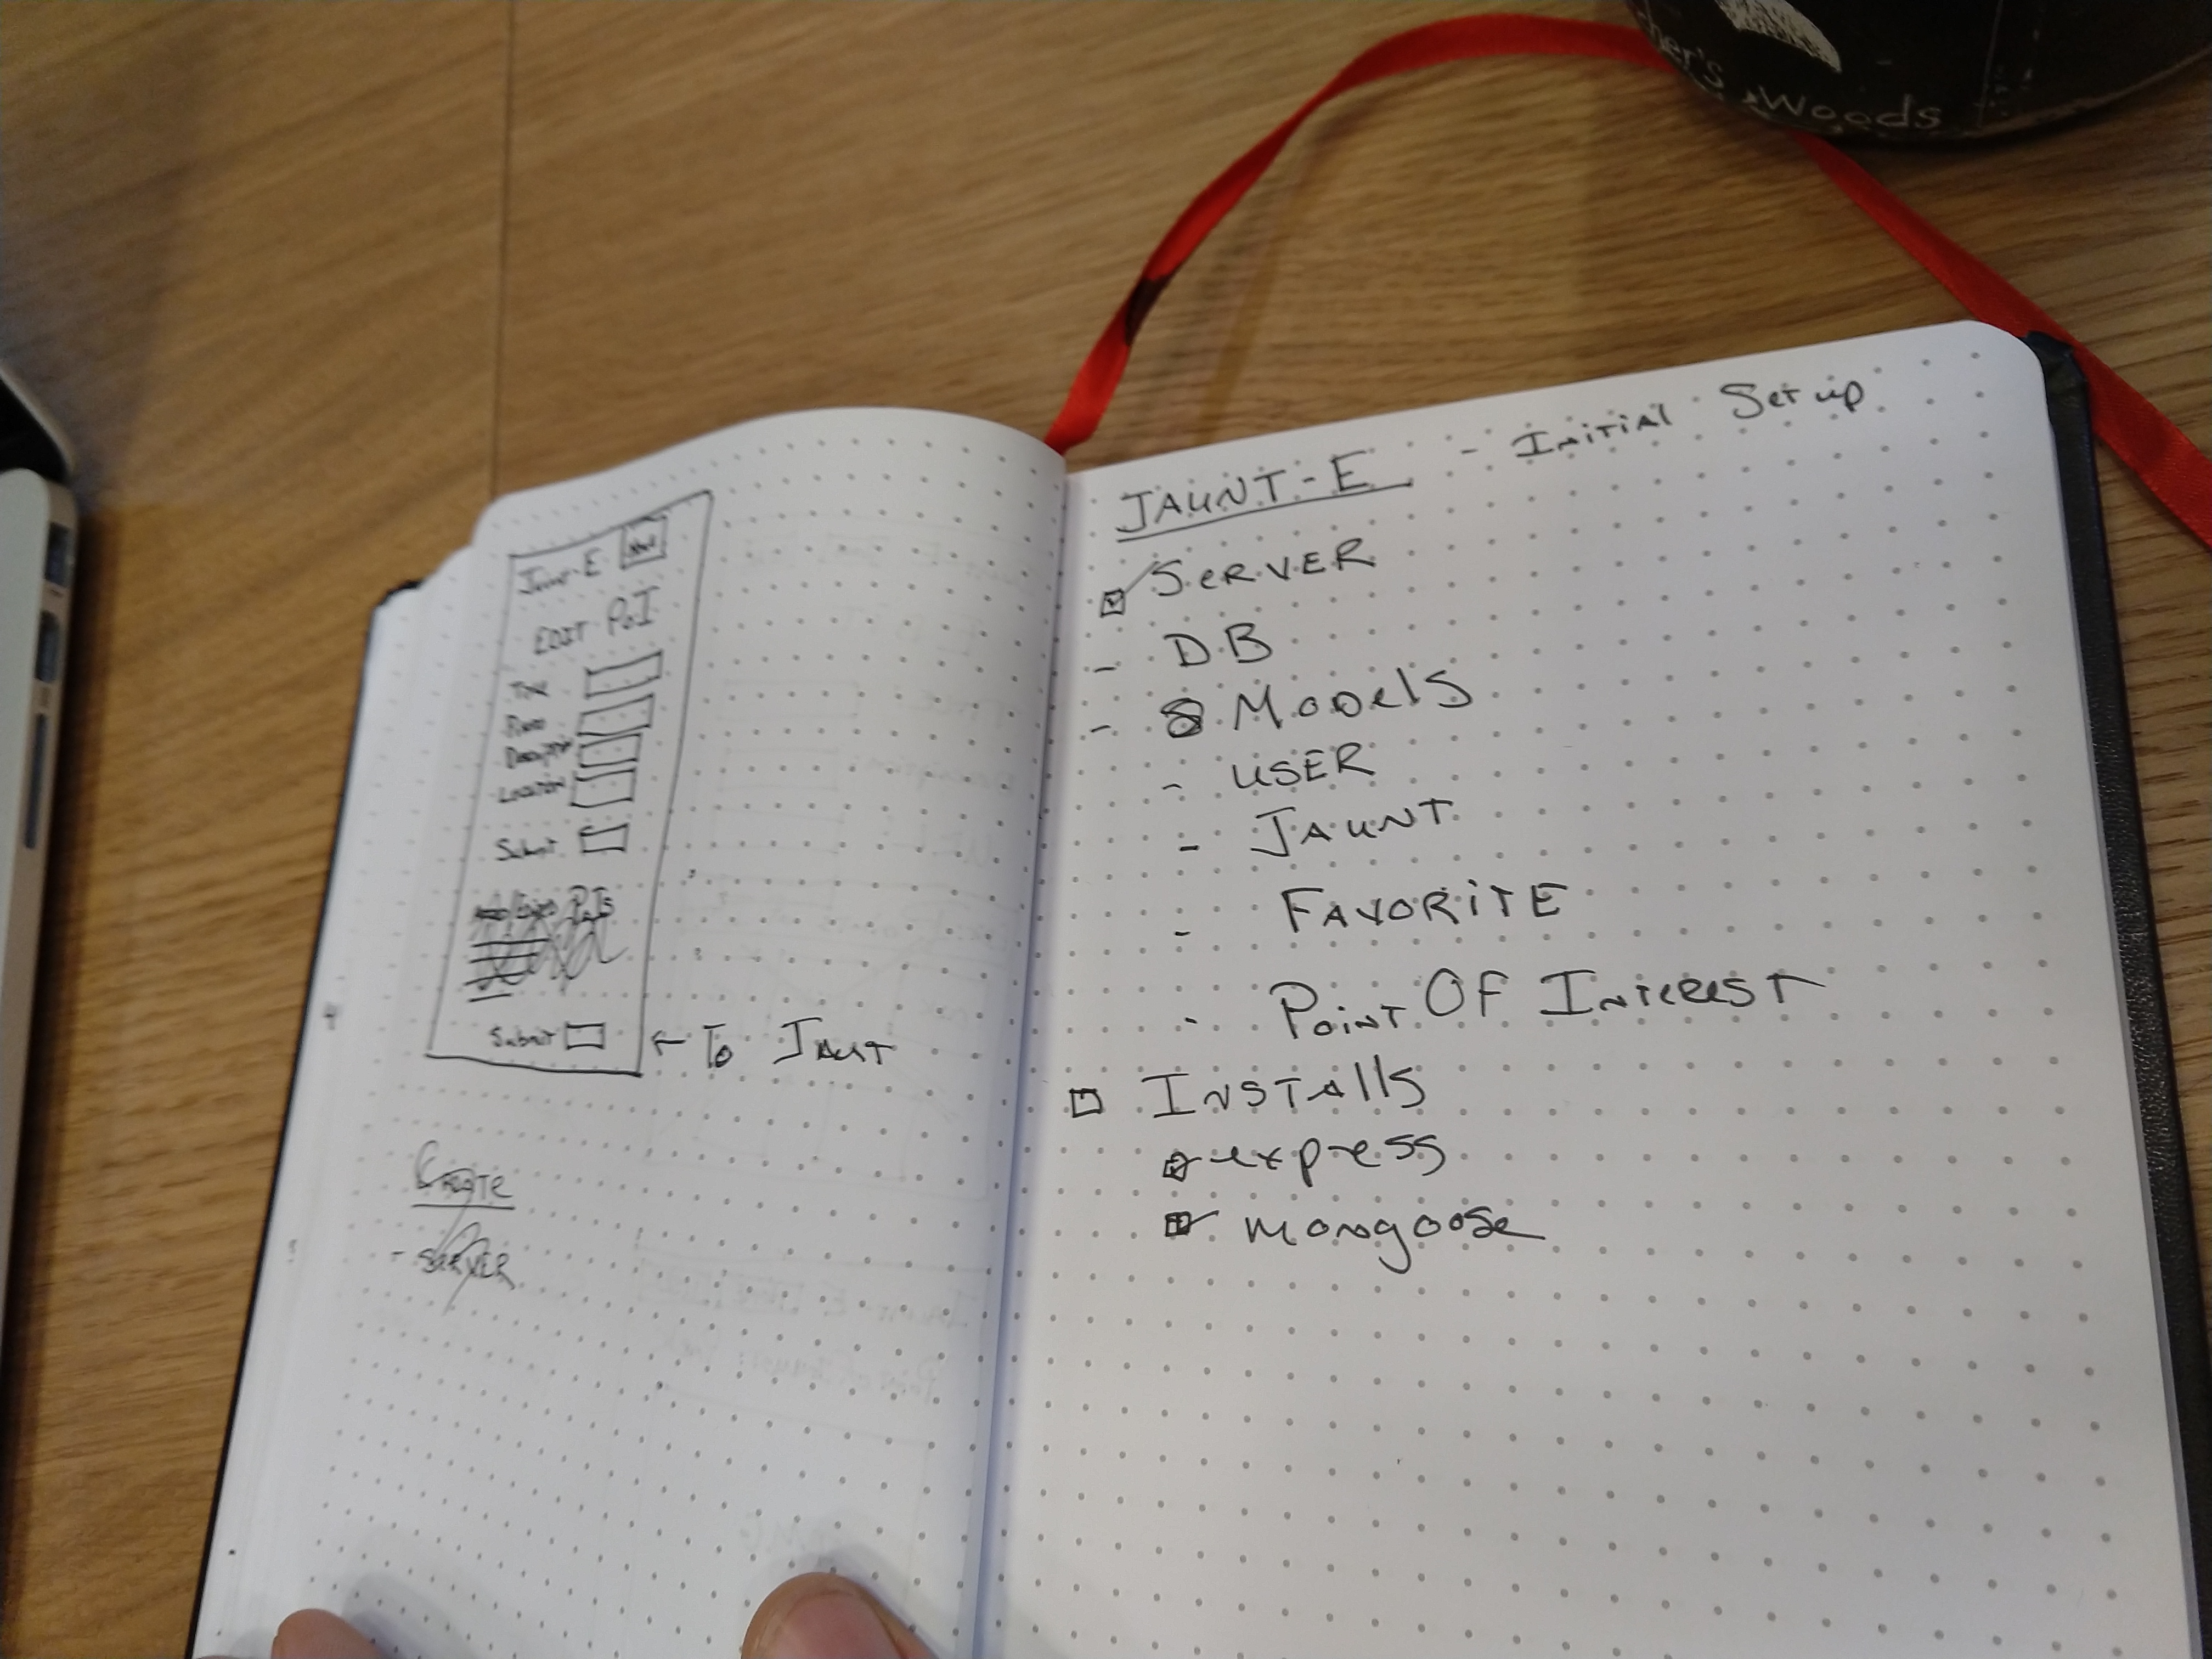 Jaunt-E
EDIT PoI
Location
Submit
Submit
← To JAUT
CREATE
- SERVER
JAUNT-E - INITIAL Set up
SERVER
- DB
- MODELS
- USER
- JAUNT
- FAVORITE
- Point OF INTEREST
INSTALLS
express
mongoose
her's
wwoods